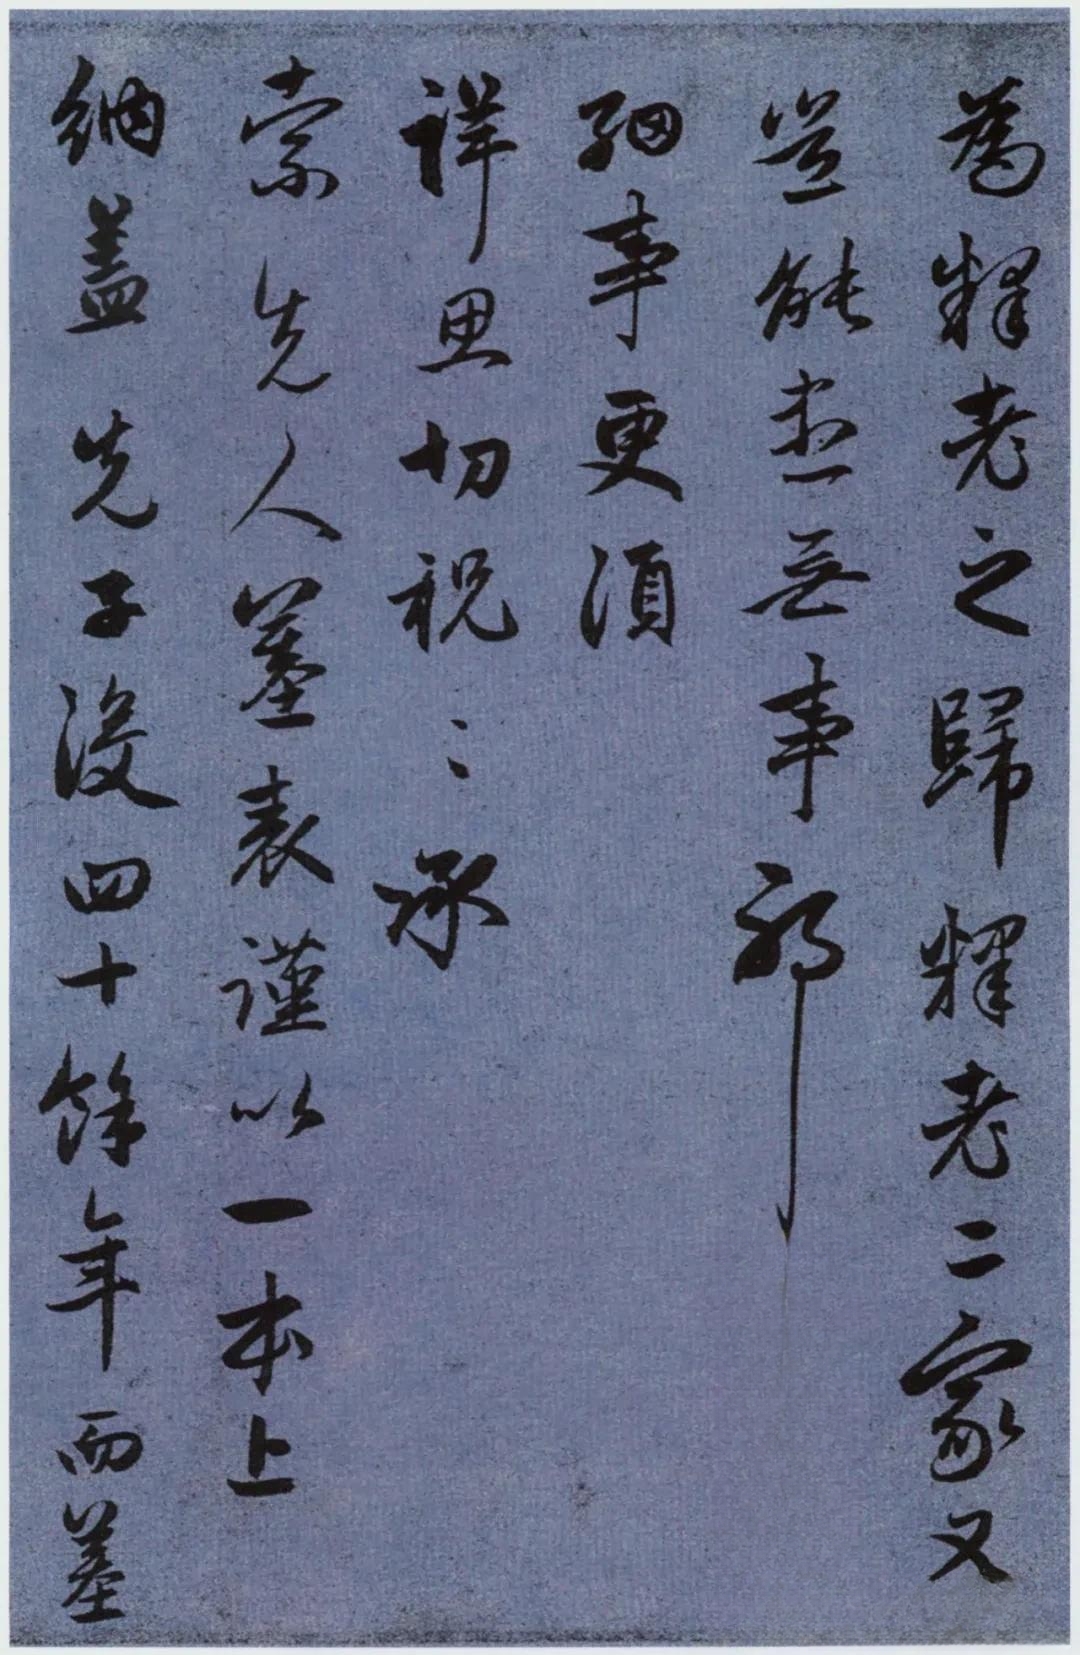 為釋老之歸釋老二家又
豈能盡無事耶
細事更須
詳思切祝〻承
索先人墓表謹以一本上
納盖先子没四十餘年而墓